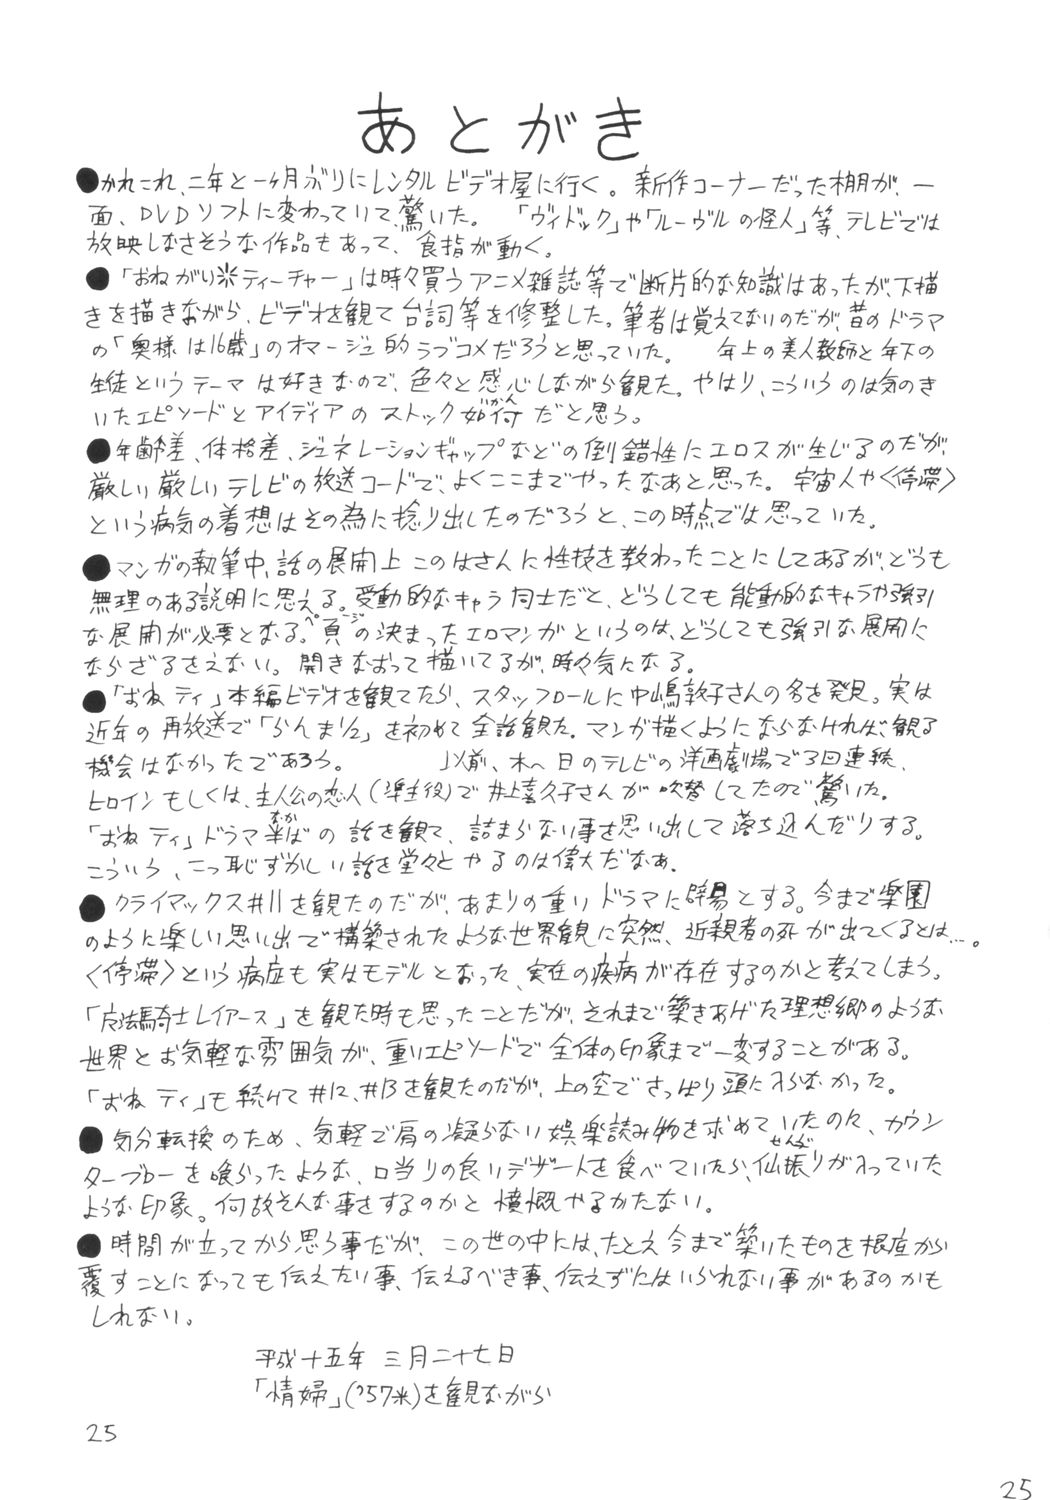 あとがき
●かれこれ、二年と一ヶ月ぶりにレンタルビデオ屋に行く。新作コーナーだった棚が、一
面、DVDソフトに変わっていて驚いた。「ヴィドック」や「ルーヴルの怪人」等、テレビでは
放映しなさそうな作品もあって、食指が動く。
●「おねがい☆ティーチャー」は時々買うアニメ雑誌等で断片的な知識はあったが、下描
きを描きながら、ビデオを観て台詞等を修整した。筆者は覚えてないのだが、昔のドラマ
の「奥様は16歳」のオマージュ的ラブコメだろうと思っていた。 年上の美人教師と年下の
生徒というテーマは好きなので、色々と感心しながら観た。やはり、こういうのは気のき
いたエピソードとアイディアのストック如何だと思う。
●年齢差、体格差、ジェネレーションギャップなどの倒錯性にエロスが生じるのだが、
厳しい厳しいテレビの放送コードで、よくここまでやったなあと思った。宇宙人や〈停滞〉
という病気の着想はその為に捻り出したのだろうと、この時点では思っていた。
●マンガの執筆中、話の展開上このはさんに性技を教わったことにしてあるが、どうも
無理のある説明に思える。受動的なキャラ同士だと、どうしても能動的なキャラや強引
な展開が必要となる。頁の決まったエロマンガというのは、どうしても強引な展開に
ならざるをえない。開きなおって描いてるが、時々気になる。
●「おねティ」本編ビデオを観てたら、スタッフロールに中嶋敦子さんの名を発見。実は
近年の再放送で「らんま1/2」を初めて全話観た。マンガ描くようにならなければ、観る
機会はなかったであろう。 以前、木〜日のテレビの洋画劇場で3回連続、
ヒロインもしくは、主人公の恋人（準主役）で井上喜久子さんが吹替してたので驚いた。
「おねティ」ドラマ半ばの話を観て、詰まらない事を思い出して落ち込んだりする。
こういう、こっ恥ずかしい話を堂々とやるのは偉大だなぁ。
●クライマックス#11を観たのだが、あまりの重いドラマに辟易とする。今まで楽園
のように楽しい思い出で構築されたような世界観に突然、近親者の死が出てくるとは…。
〈停滞〉という病症も実はモデルとなった、実在の疾病が存在するのかと考えてしまう。
「魔法騎士レイアース」を観た時も思ったことだが、それまで築きあげた理想郷のような
世界とお気軽な雰囲気が、重いエピソードで全体の印象まで一変することがある。
「おねティ」も続けて#12、#13を観たのだが、上の空でさっぱり頭に入らなかった。
●気分転換のため、気軽で肩の凝らない娯楽読み物を求めていたのに、カウン
ターブローを喰らったような、口当りの良いデザートを食べていたら、仙振りが入っていた
ような印象。何故そんな事をするのかと憤慨やるかたない。
●時間が立ってから思う事だが、この世の中には、たとえ今まで築いたものを根底から
覆すことになっても伝えたい事、伝えるべき事、伝えずにはいられない事があるのかも
しれない。
平成十五年 三月二十七日
「情婦」（'57米）を観ながら
25
25